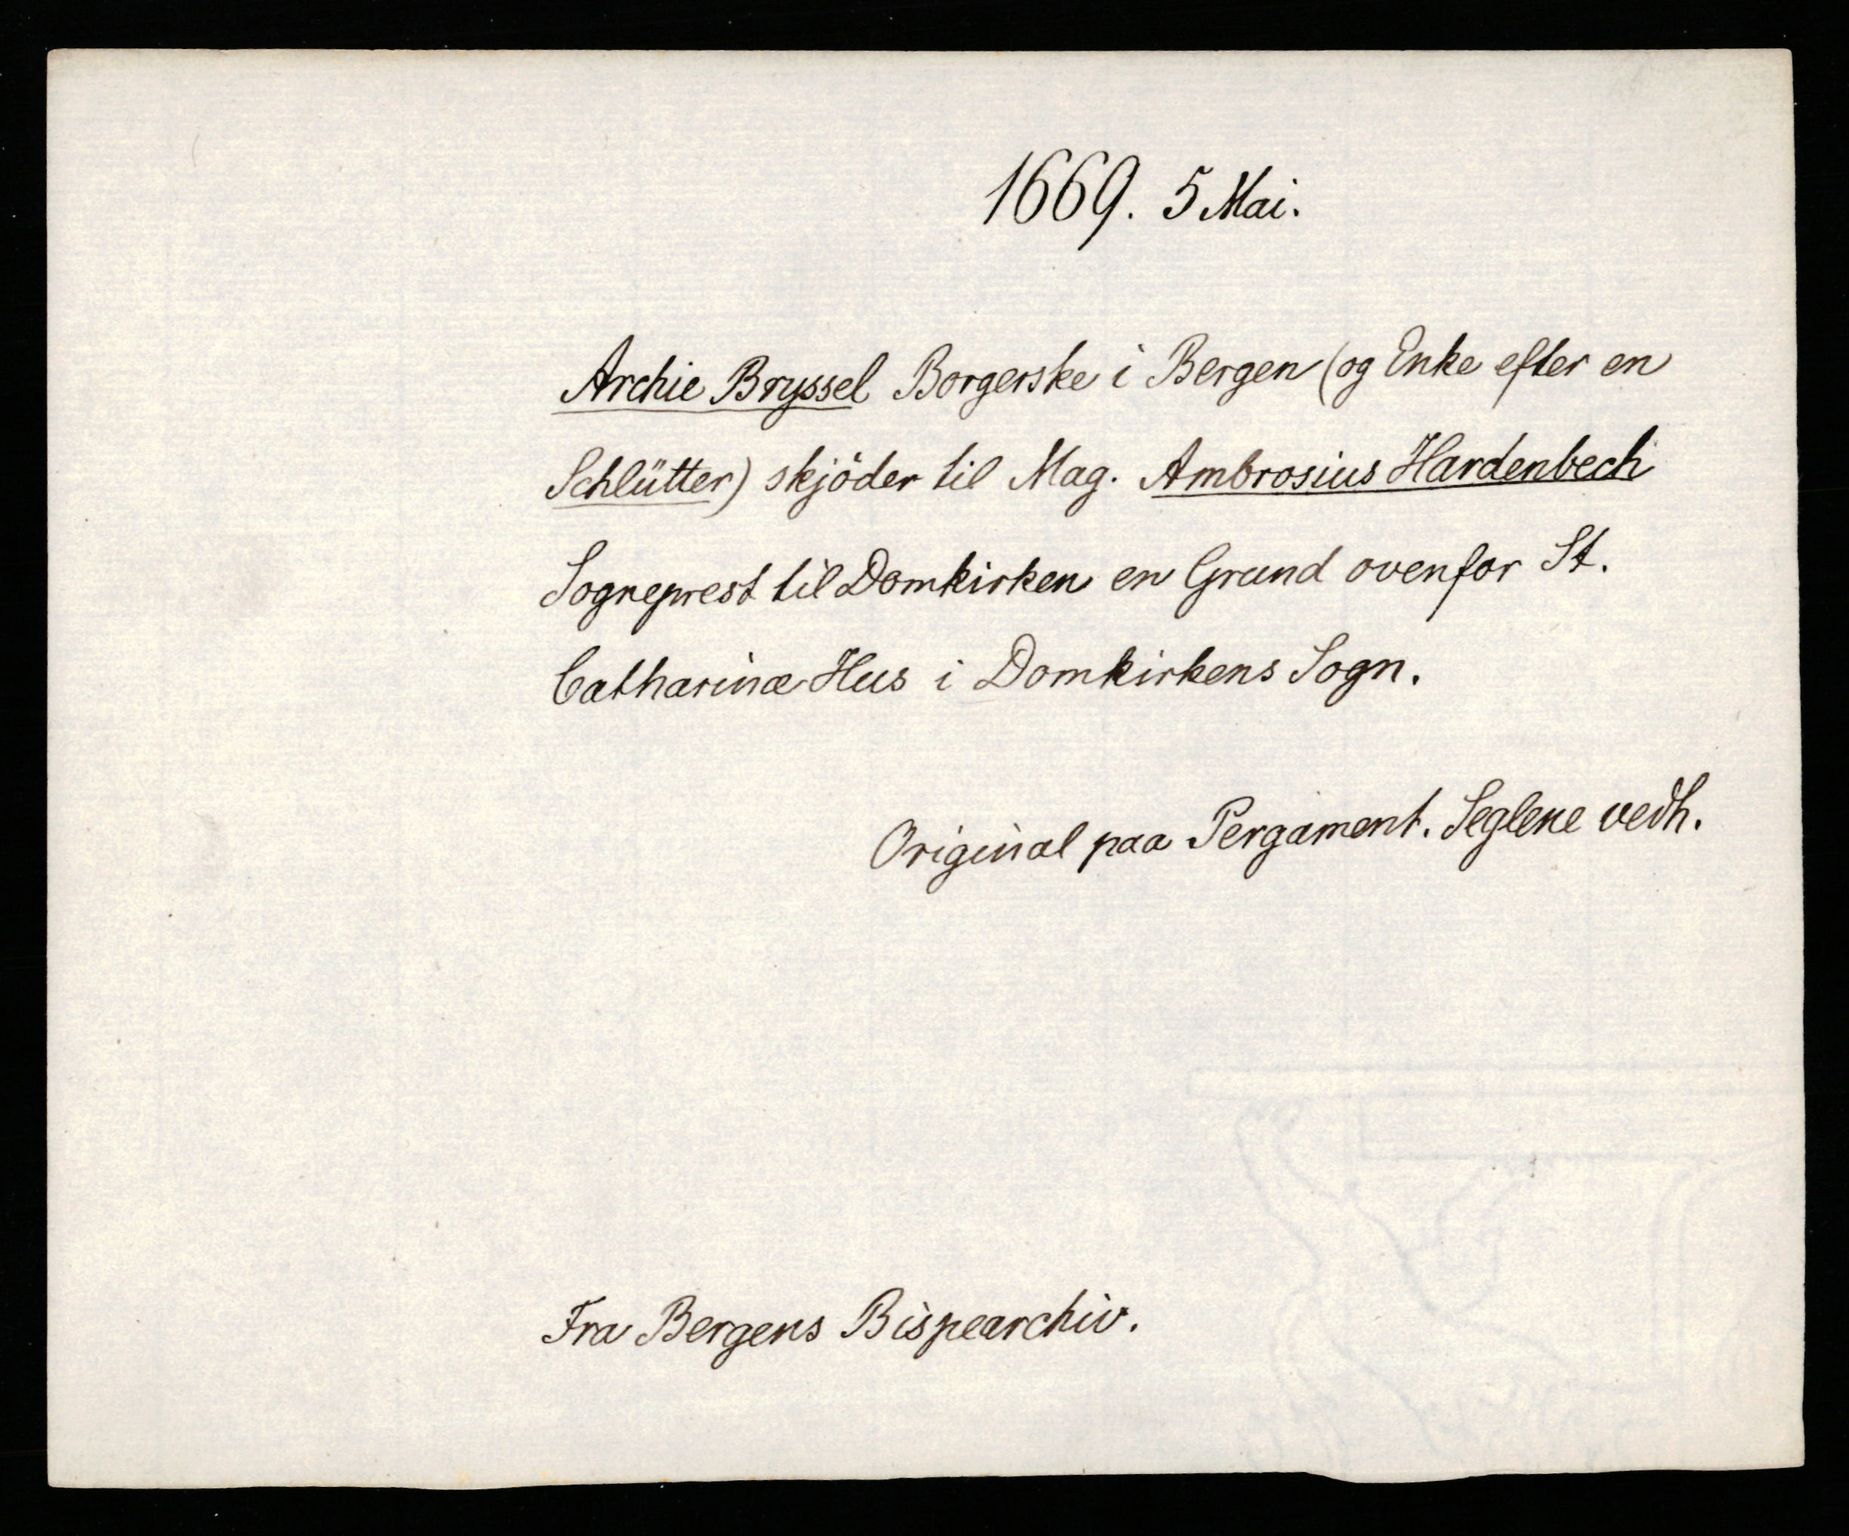 1669. 5 Mai.
Archie Bryssel Borgerske i Bergen (og Enke efter en
Schlütter) skjöder til Mag. Ambrosius Hardenbech
Sogneprest til Domkirken en Grund ovenfor St.
Catharinæ Hus i Domkirkens Sogn.
Original paa Pergament. Seglene vedh.
Fra Bergens Bispearchiv.